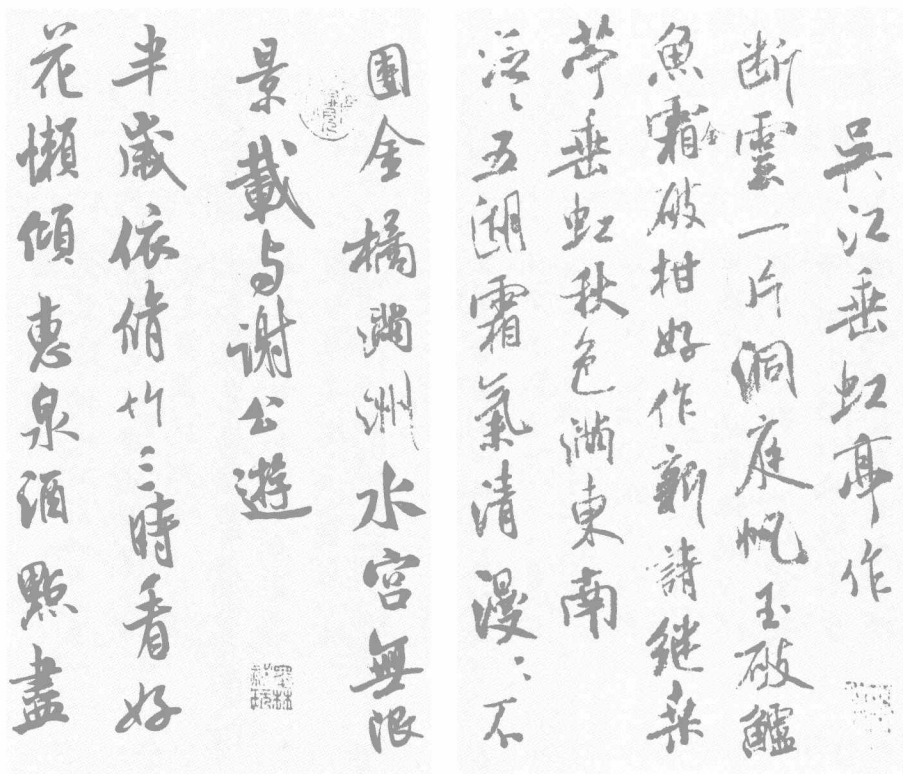 吳江垂虹亭作
断雲一片洞庭帆玉破鱸
魚霜金破柑好作新詩継桑
苧垂虹秋色滿東南
泛〻五湖霜氣清漫〻不
團金橘滿洲水宮無限
景載与謝公遊
墨林祕玩
半歲依脩竹三時看好
花懶傾惠泉酒點盡